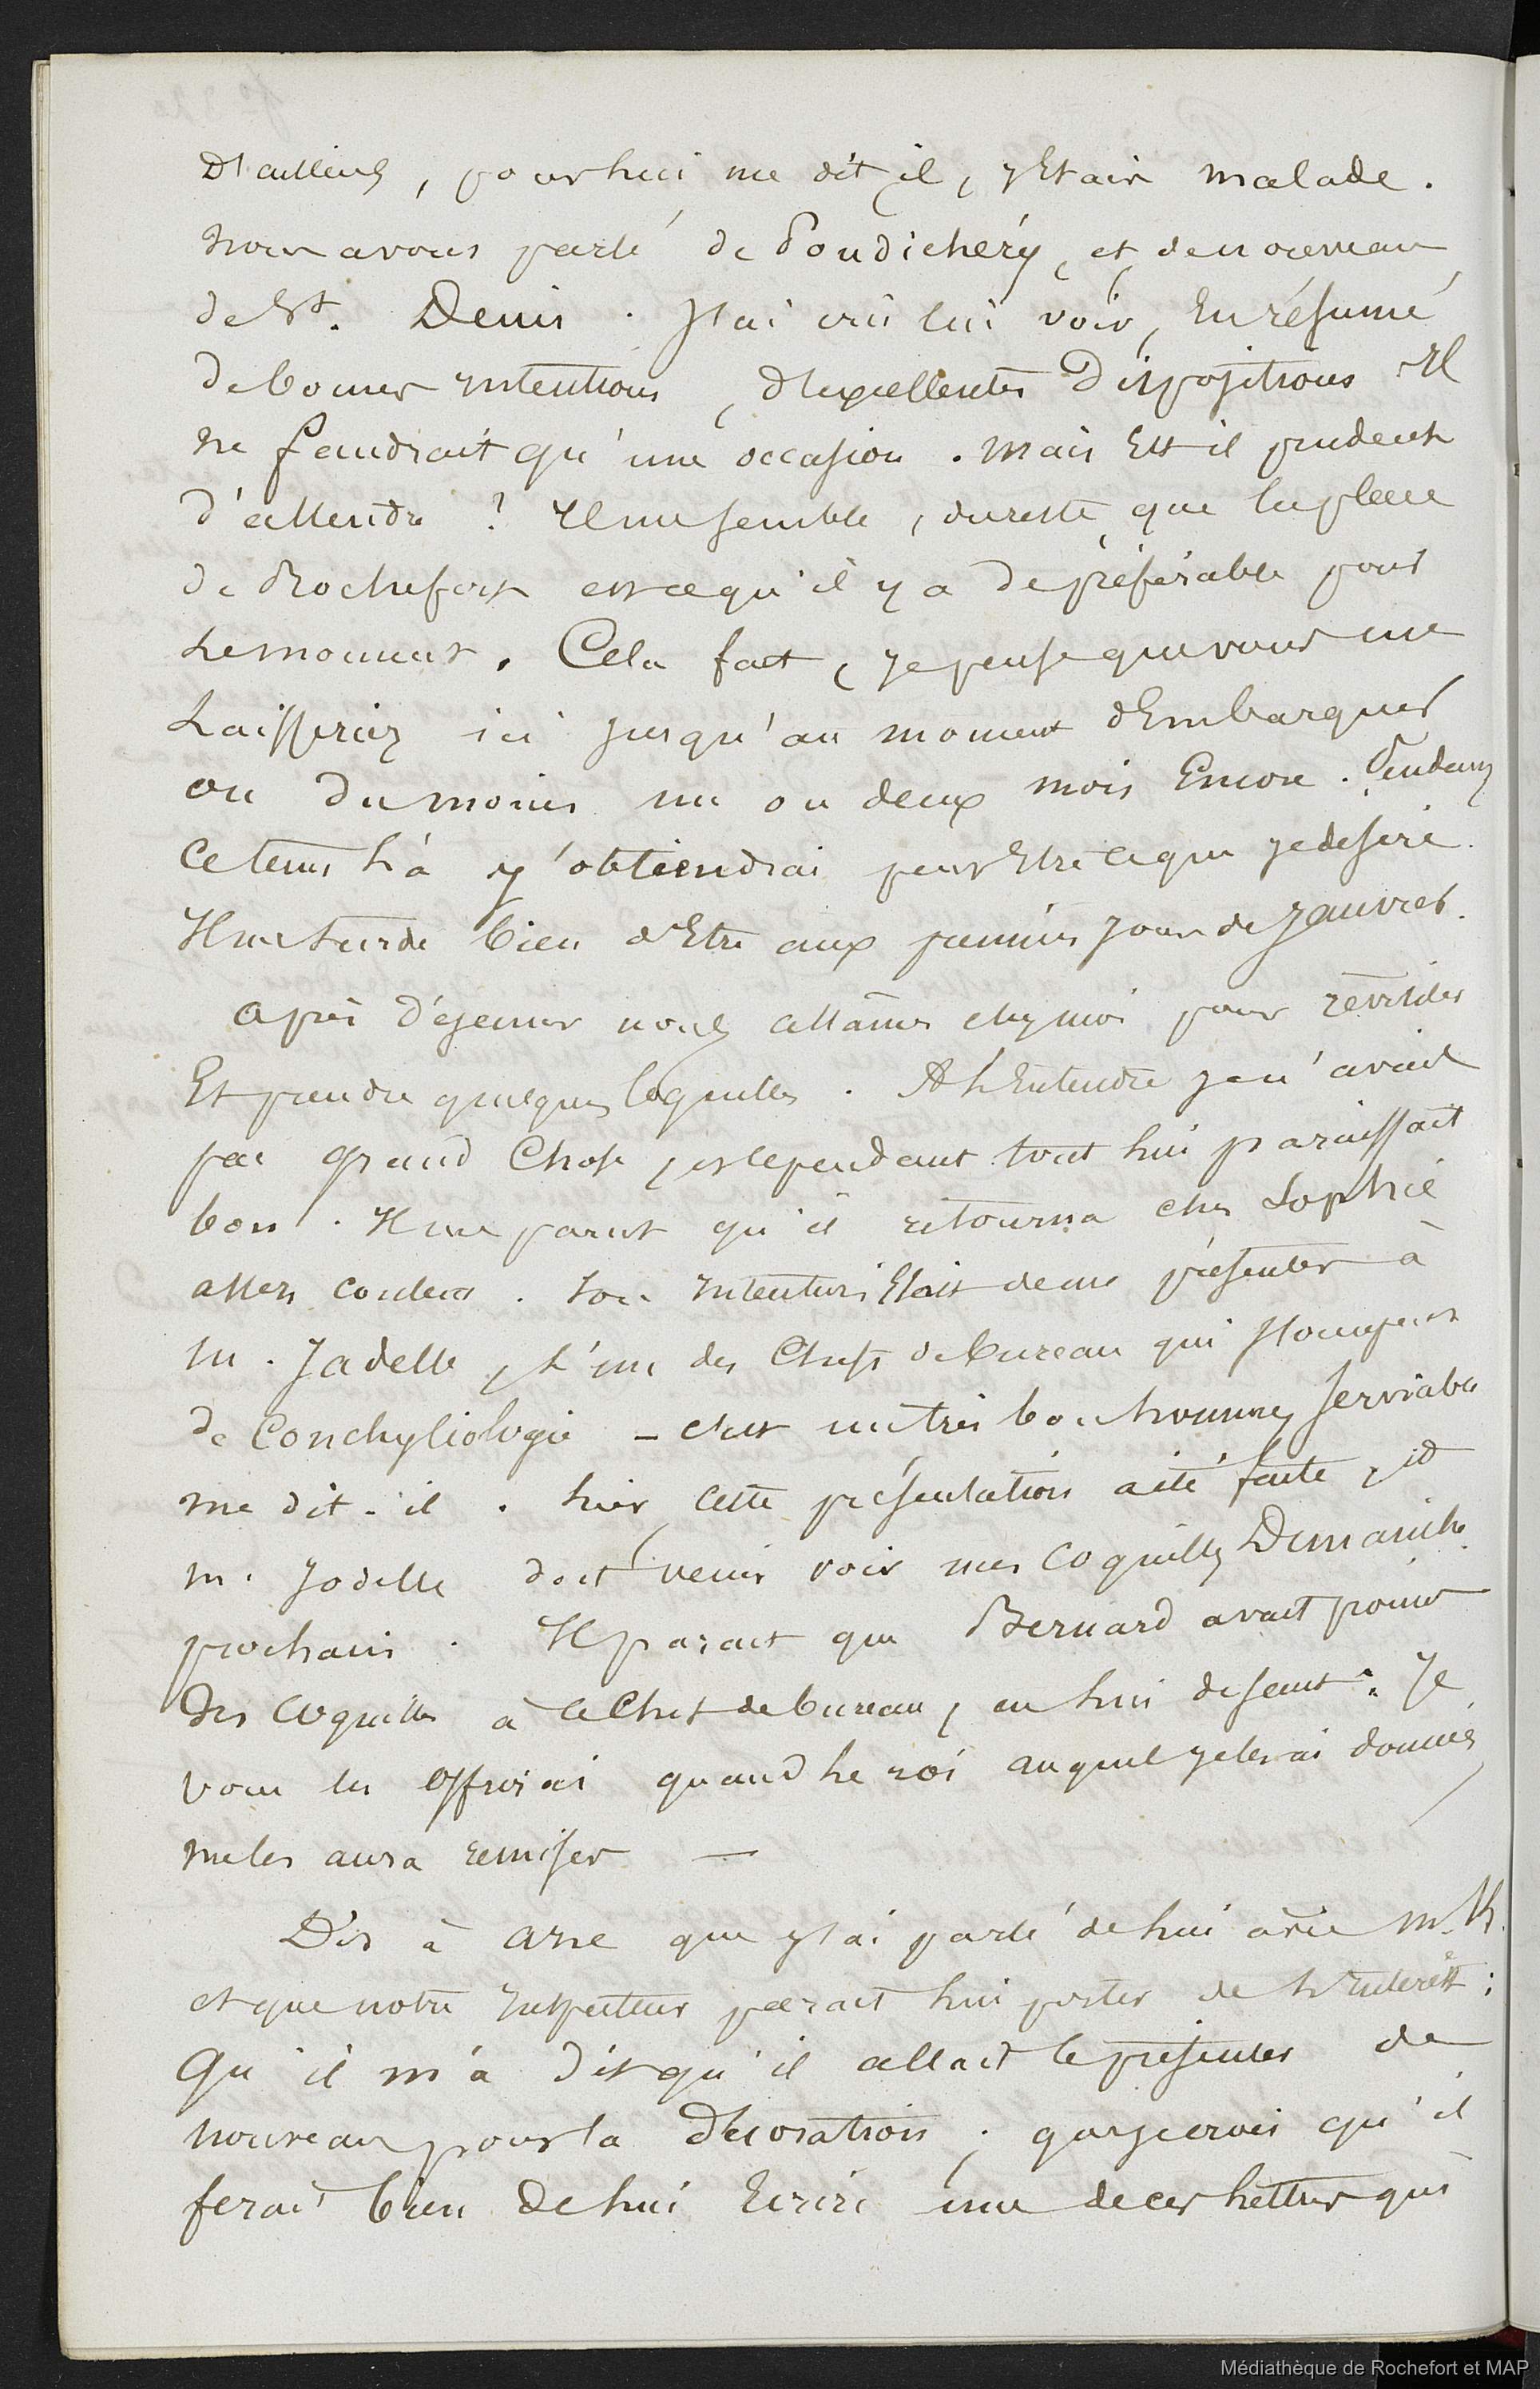 D'ailleurs, pour lui me dit il, j'Etais malade.
nous avons parlé de Pondichéry, et de nouveau
de St. Denis. J'ai crû lui voir, En résumé
de bonnes intentions, d'excellentes Dispositions Il
ne faudrait qu'une occasion. mais Est il prudent
d'attendre? Il me semble, du reste, que la place
de Rochefort est ce qu'il y a de préférable pour
Le moment. Cela fait, je pense que vous me
Laisseriez ici jusqu'au moment d'Embarquer
ou du moins un ou deux mois Encore. Pendant
Ce tems là j'obtiendrai peut Etre ce que je desire.
Il me tarde bien d'Etre aux premiers jours de Janvier.
Après Déjeuner nous allâmes chez moi pour revisiter
Et prendre quelques coquilles. A L'Entendre je n'avais
pas grand Chose, et cependant tout lui paraissait
bon. Il me parut qu'il retourna chez Sophie
assez content. Son Intention Etait de me présenter à
M. Jadelle, L'un des Chefs de bureau qui s'occupent
de Conchyliologie - c'est un très bon homme, serviable
me dit-il. hier, cette présentation a été faite, et
M. Jodelle doit venir voir mes coquilles Dimanche
prochain. Il parait que Bernard avait promis
des coquilles à ce Chef de bureau, en lui disant: Je
vous les offrirai quand le roi auquel je les ai données,
me les aura remises —
Dis à que j'ai parlé de lui avec M. K.
et que notre Inspecteur parait lui porter de L'Interêt;
Qu'il m'a dit qu'il allait le présenter de
nouveau pour la Décoration; que je crois qu'il
ferait bien de lui Ecrire une de ces Lettres qui